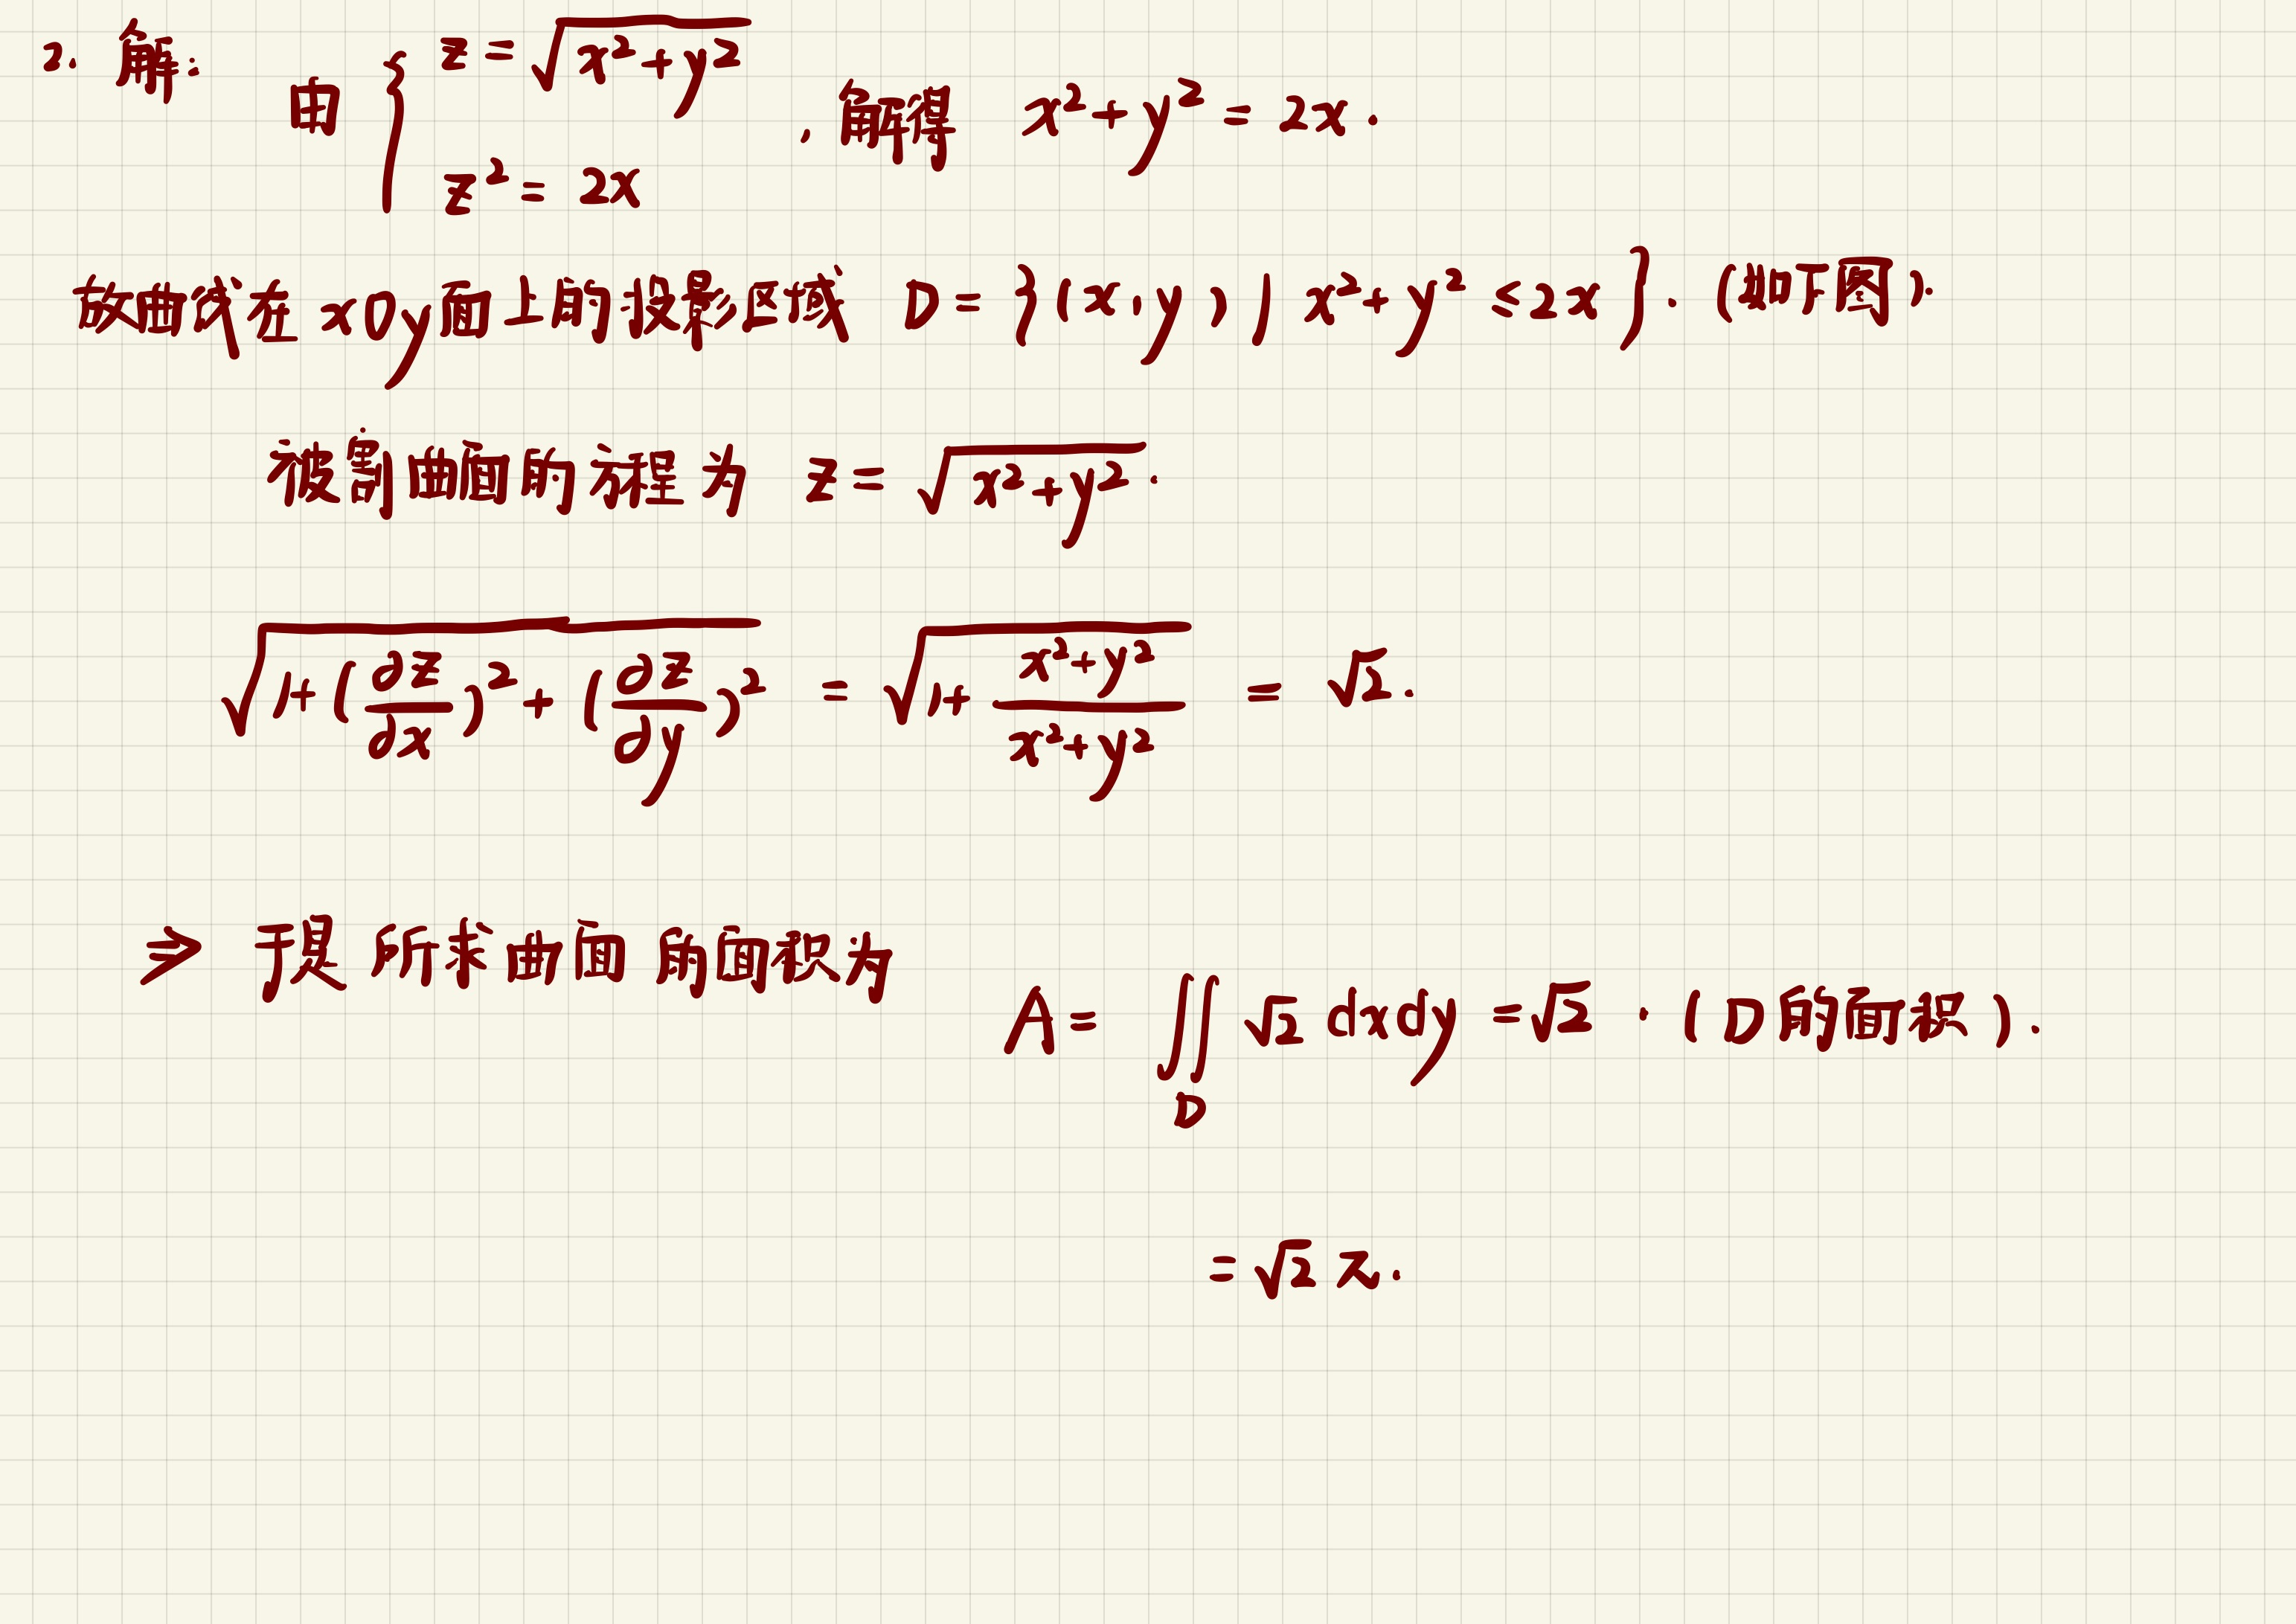 2. 解:
由 { z = √(x²+y²) , z² = 2x , 解得 x²+y² = 2x.
故曲线在 xOy 面上的投影区域 D = {(x,y) | x²+y² ≤ 2x}. (如下图).
被割曲面的方程为 z = √(x²+y²).
√(1+(∂z/∂x)²+(∂z/∂y)²) = √(1+(x²+y²)/(x²+y²)) = √2.
⇒ 于是所求曲面的面积为
A = ∬_D √2 dxdy = √2 · (D的面积).
= √2 π.